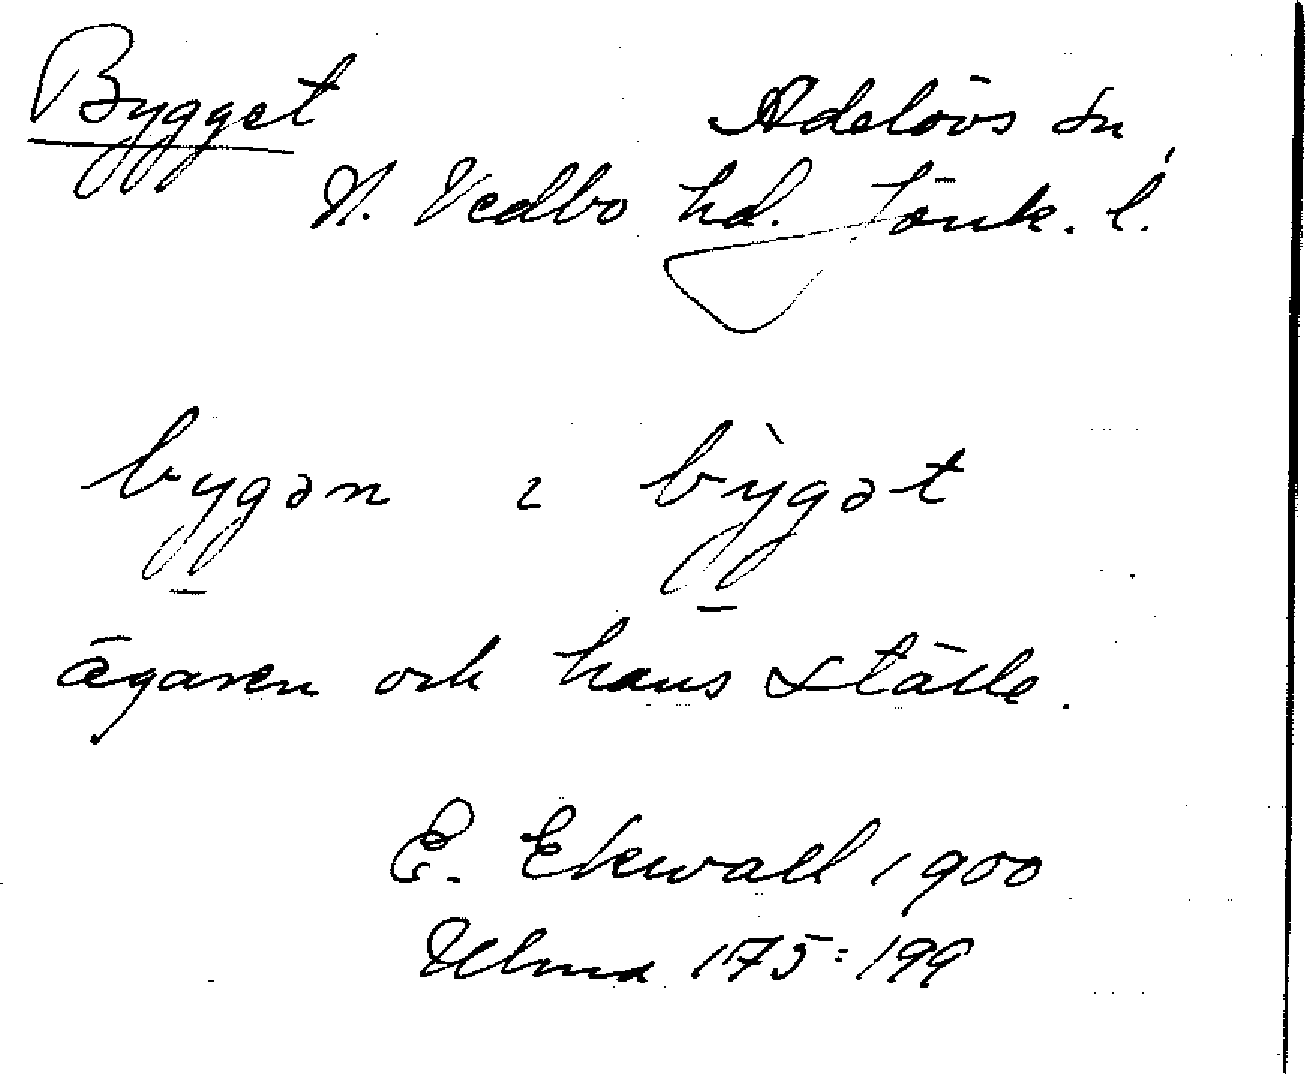 Bygget
Adelövs sn,
N. Vedbo hd. Jönk. l.
bygən ı bỳgət
ägaren och hans ställe.
E. Ekwall 1900
Ulma 175:199